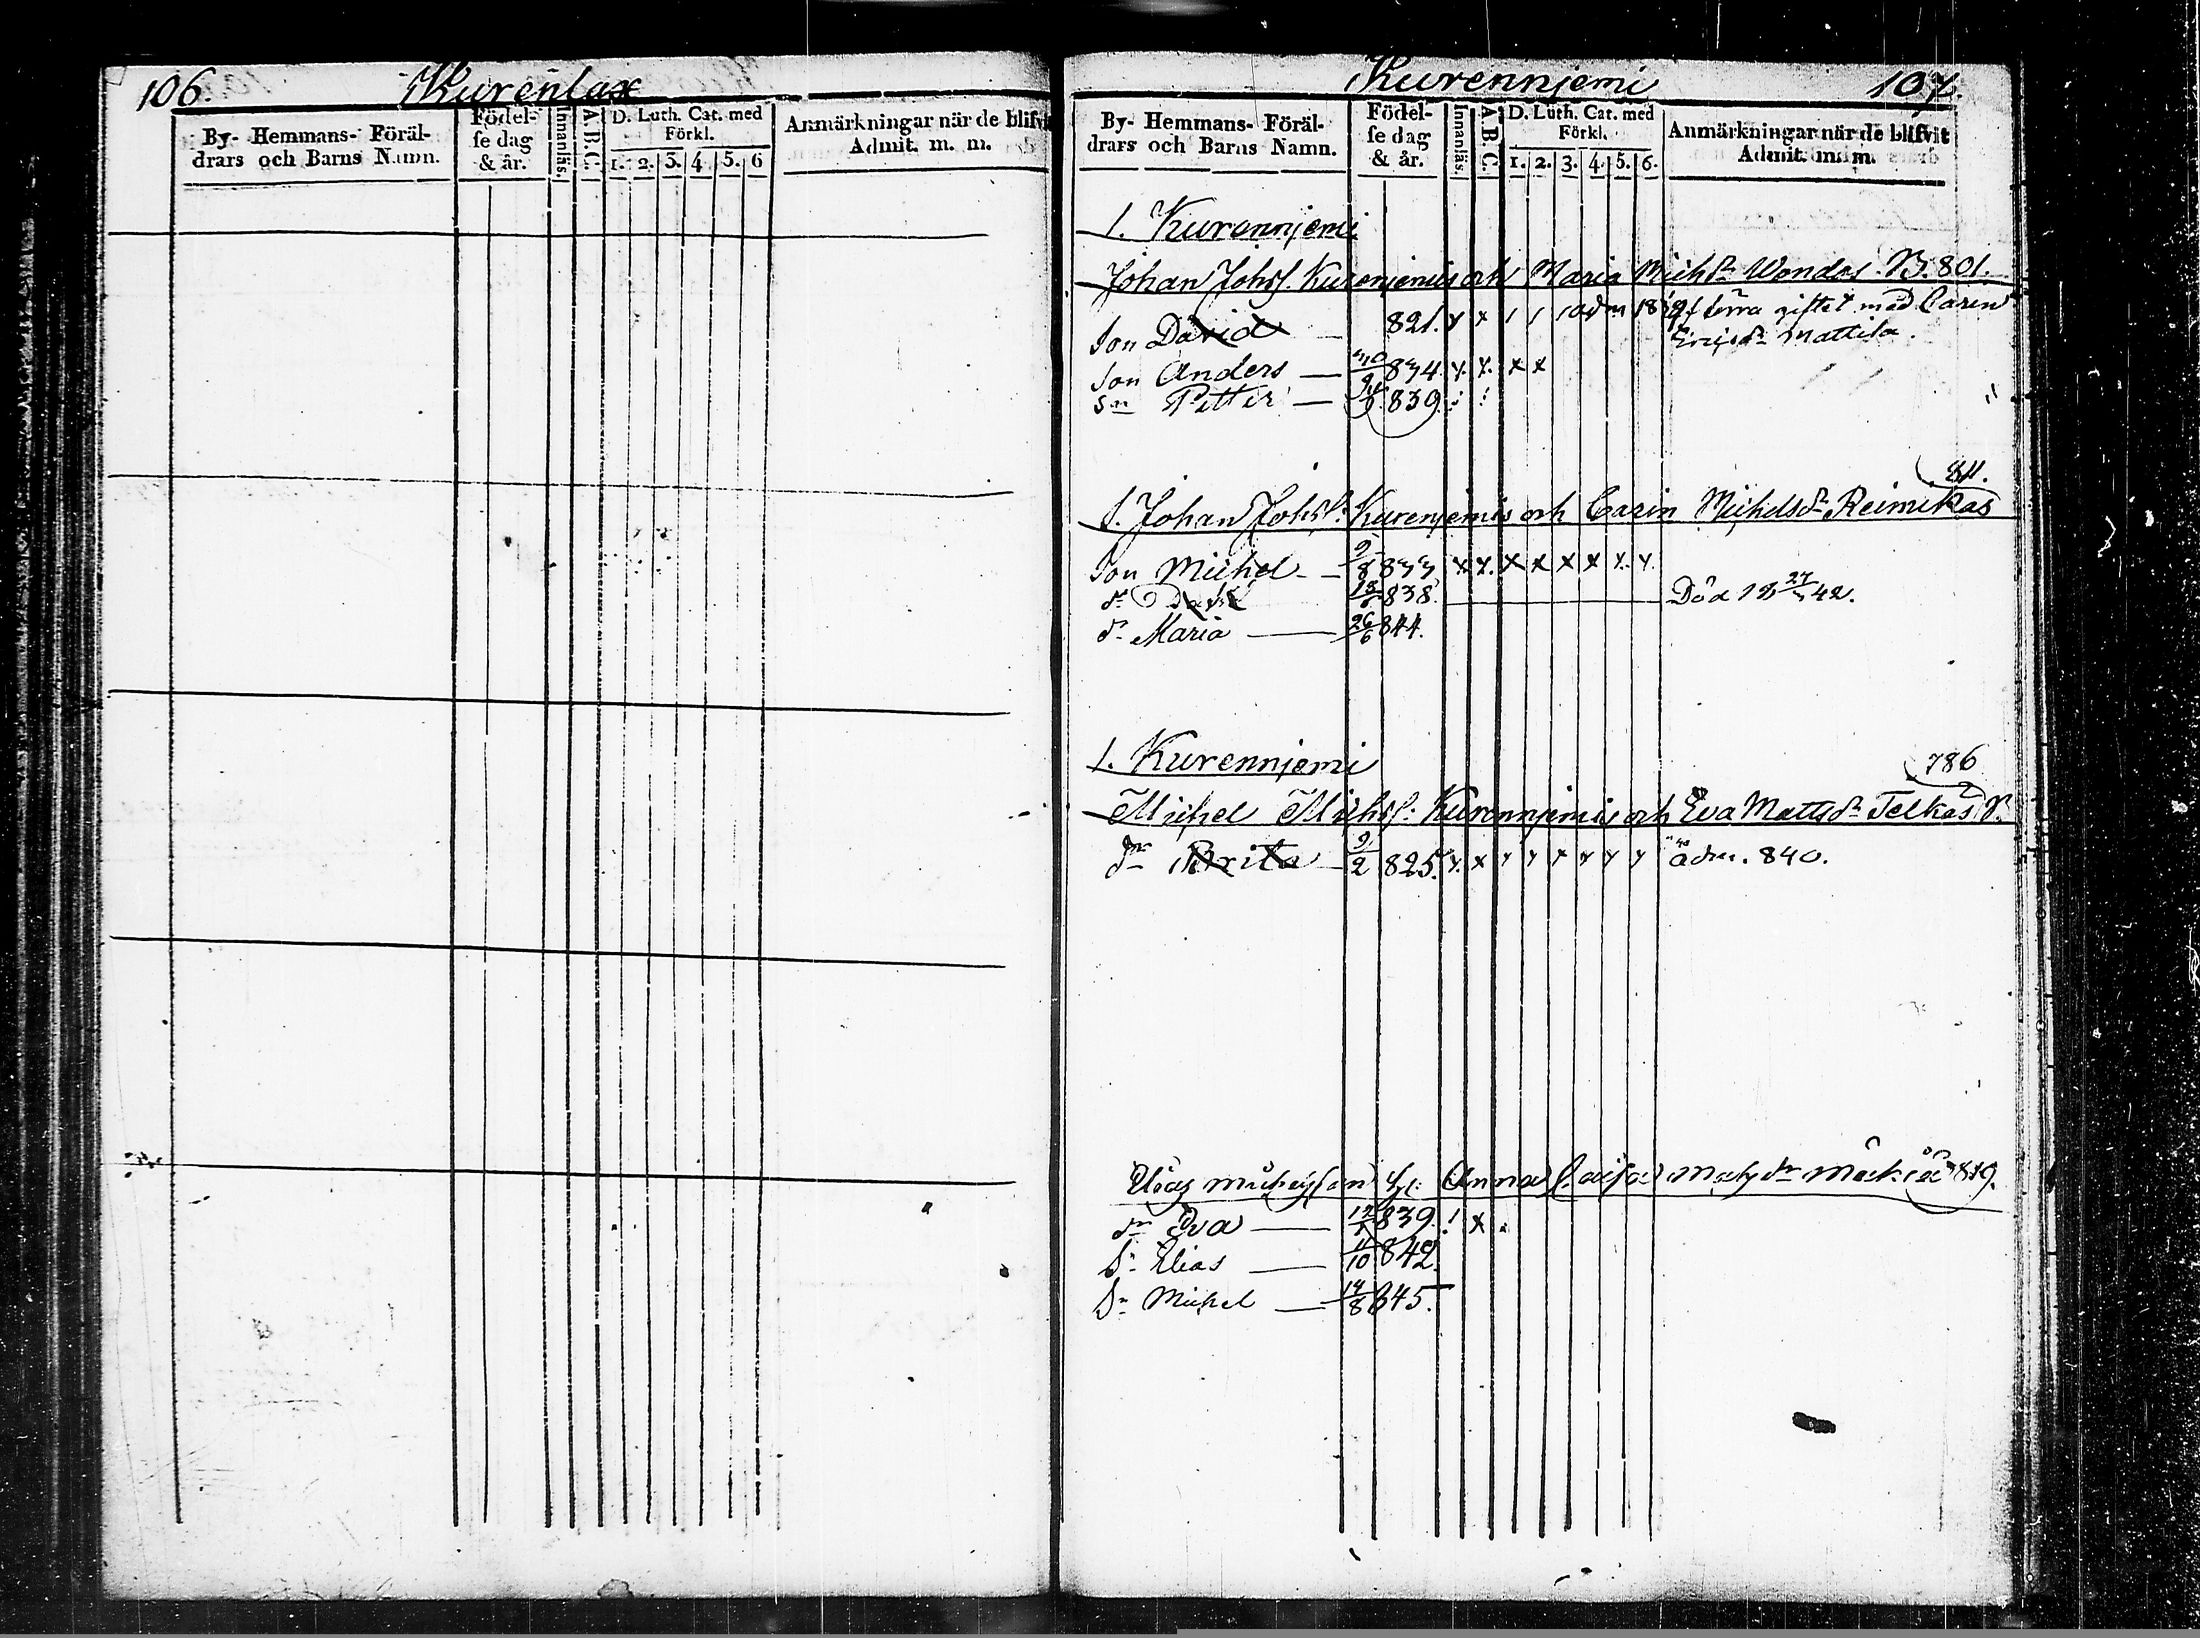 106. Kurenlax
By- Hemmans- Föräl-
drars och Barns Namn.
Födel-
se dag
& år.
Innanläs.
A.B.C.
D. Luth. Cat. med
Förkl.
1. 2. 3. 4 5. 6
Anmärkningar när de blifvit
Admit. m. m.
Kurennjemi 107.
By- Hemmans- Föräl-
drars och Barns Namn.
Födel-
se dag
& år.
Innanläs.
A.B.C.
D. Luth. Cat. med
Förkl.
1. 2. 3. 4. 5. 6.
Anmärkningar när de blifvit
Admit. m. m.
1. Kurennjemi
Johan Johss. Kurenjemis och Maria Michsdr Wondas 801.
Son David 821. x x 1 1 giftet med Caren
Mattila.
Son Anders — 834 x x x x
Sn Petter — 839
811.
1. Johan Johss: Kurenjemis och Carin Michelsdr Reimikas
Son Michel — 9/8 833 x x x x x x x x
dr 838. Död 18 27/ 42.
dr Maria — 26/6 844.
1. Kurennjemi
786
Michel Michss: Kurennjemis och Eva Mattsdr Telkas
dr Brita — 9/2 825 x x x x x x x x adm. 840.
Anna Caisa 819.
dr Eva — 839. x
Sn Elias — 11/10 842.
Sn Michel — 14/8 845.